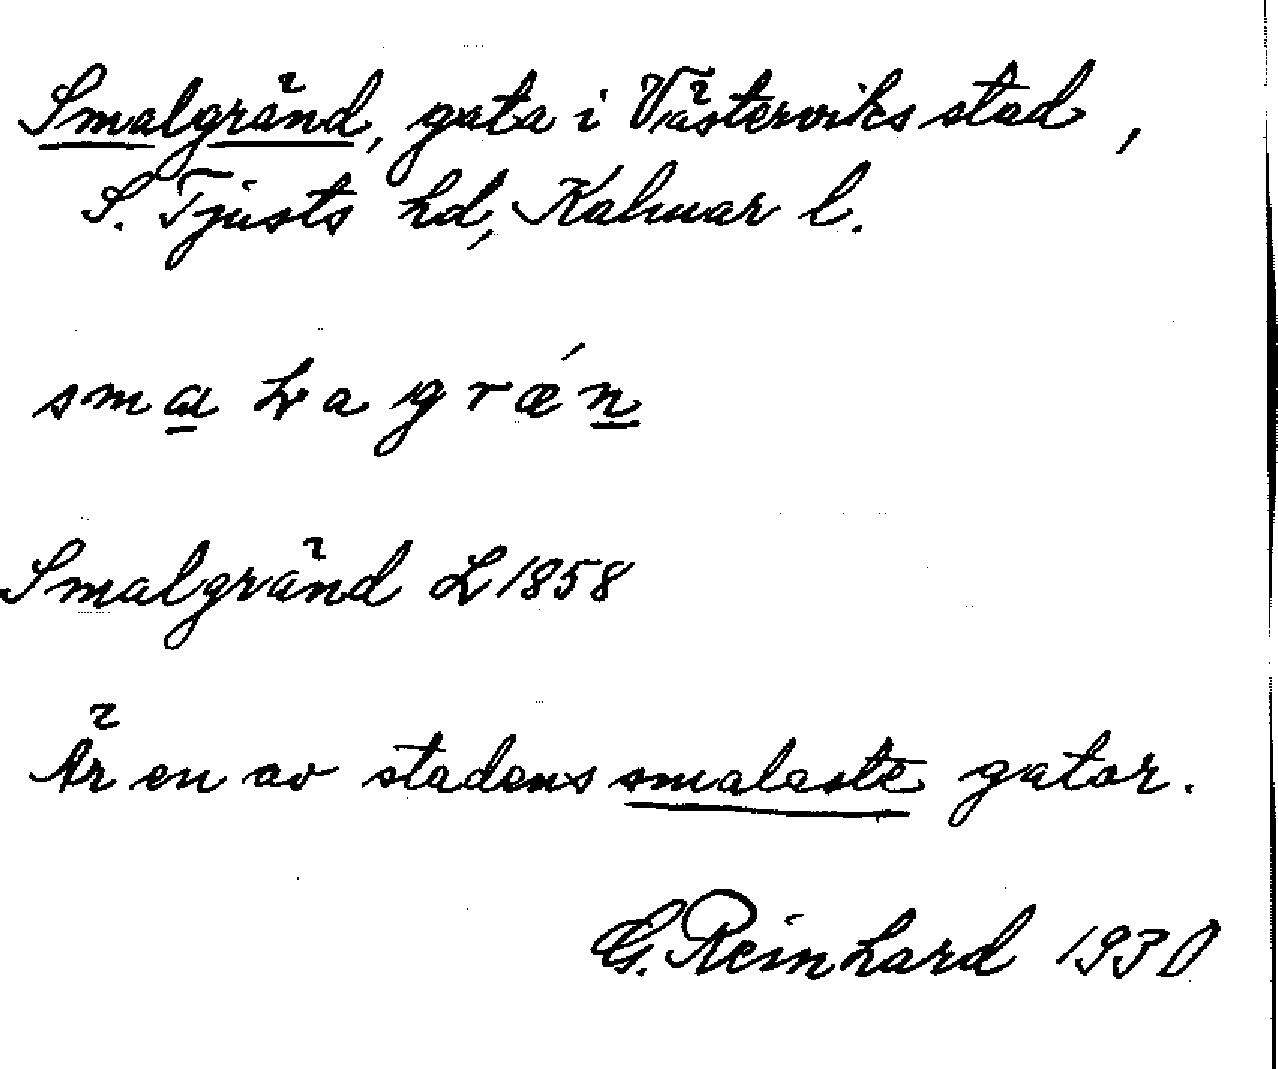 Smalgränd, gata i Västerviks stad,
S. Tjusts hd, Kalmar l.
Smalgränd L 1858
Är en av stadens smalaste gator.
G. Reinhard 1930